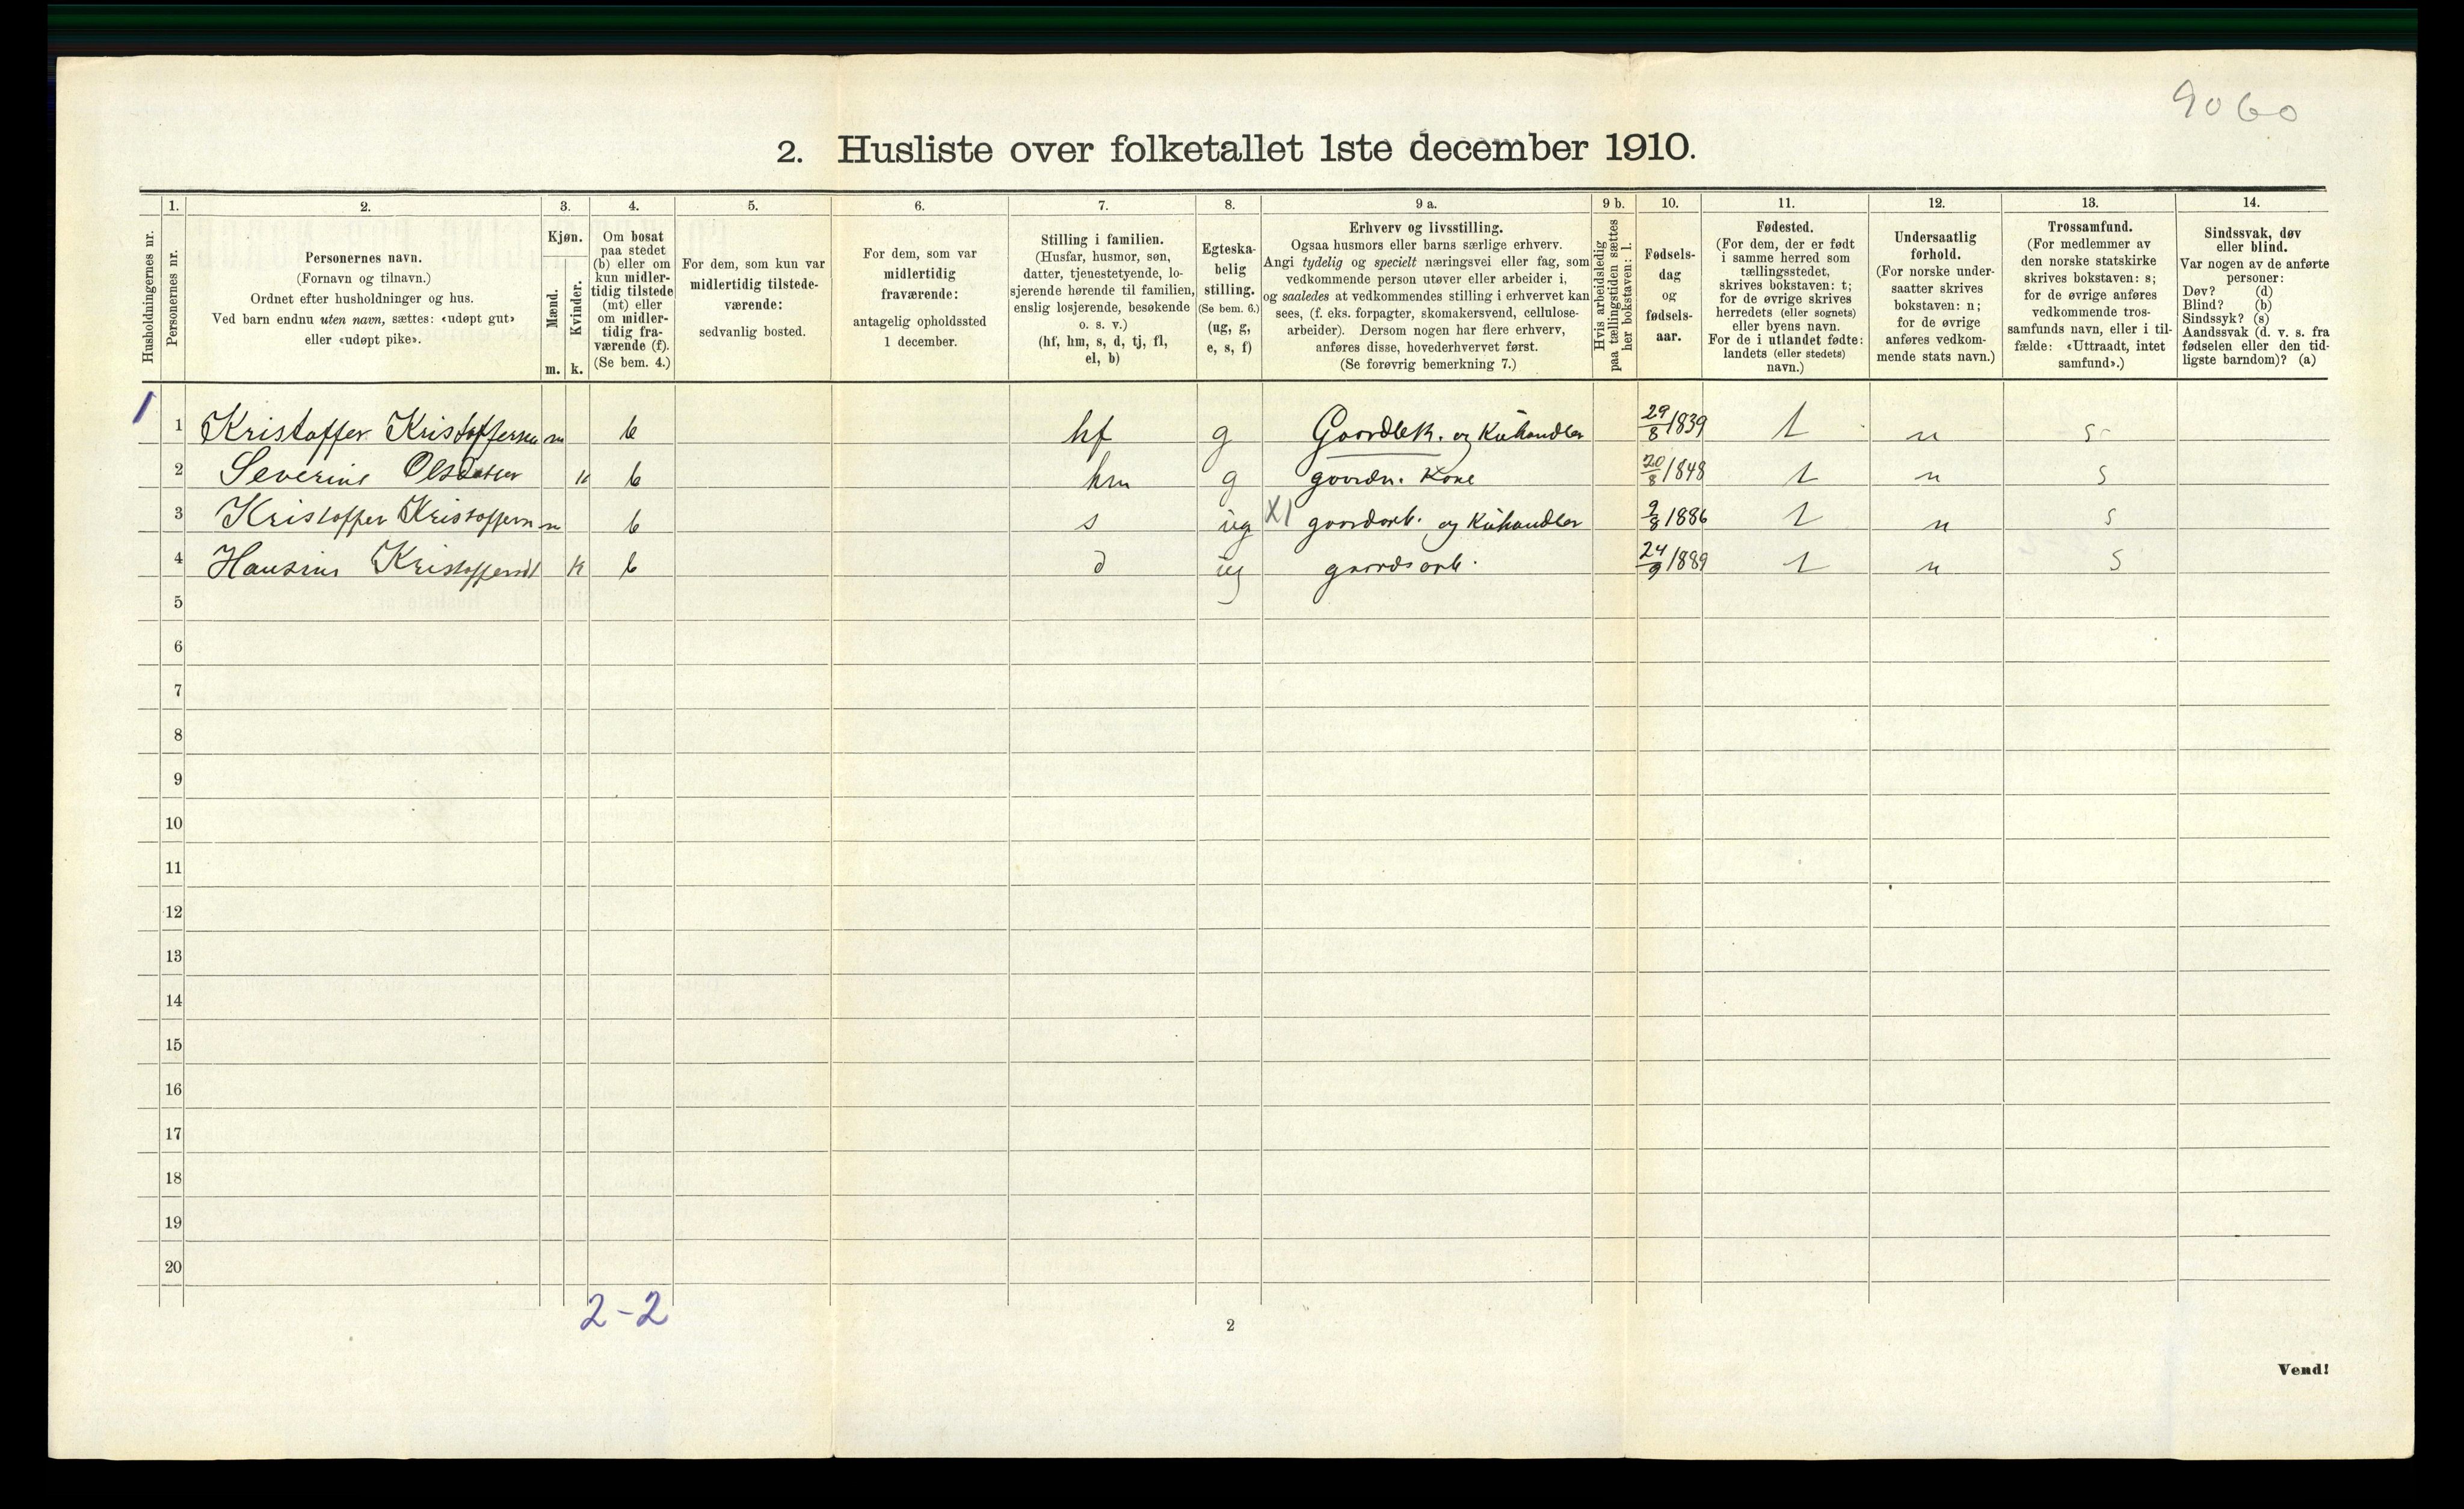 9060
2. Husliste over folketallet 1ste december 1910.
Husholdningernes nr.
1.
Personernes nr.
2.
Personernes navn.
(Fornavn og tilnavn.)
Ordnet efter husholdninger og hus.
Ved barn endnu uten navn, sættes: «udøpt gut»
eller «udøpt pike».
3.
Kjøn.
Mænd.
Kvinder.
m. k.
4.
Om bosat
paa stedet
(b) eller om
kun midler-
tidig tilstede
(mt) eller
om midler-
tidig fra-
værende (f).
(Se bem. 4.)
5.
For dem, som kun var
midlertidig tilstede-
værende:
sedvanlig bosted.
6.
For dem, som var
midlertidig
fraværende:
antagelig opholdssted
1 december.
7.
Stilling i familien.
(Husfar, husmor, søn,
datter, tjenestetyende, lo-
sjerende hørende til familien,
enslig losjerende, besøkende
o. s. v.)
(hf, hm, s, d, tj, fl,
el, b)
8.
Egteska-
belig
stilling.
(Se bem. 6.)
(ug, g,
e, s, f)
9 a.
Erhverv og livsstilling.
Ogsaa husmors eller barns særlige erhverv.
Angi tydelig og specielt næringsvei eller fag, som
vedkommende person utøver eller arbeider i,
og saaledes at vedkommendes stilling i erhvervet kan
sees, (f. eks. forpagter, skomakersvend, cellulose-
arbeider). Dersom nogen har flere erhverv,
anføres disse, hovederhvervet først.
(Se forøvrig bemerkning 7.)
9 b.
Hvis arbeidsledig
paa tællingstiden sættes
her bokstaven: l.
10.
Fødsels-
dag
og
fødsels-
aar.
11.
Fødested.
(For dem, der er født
i samme herred som
tællingsstedet,
skrives bokstaven: t;
for de øvrige skrives
herredets (eller sognets)
eller byens navn.
For de i utlandet fødte:
landets (eller stedets)
navn.)
12.
Undersaatlig
forhold.
(For norske under-
saatter skrives
bokstaven: n;
for de øvrige
anføres vedkom-
mende stats navn.)
13.
Trossamfund.
(For medlemmer av
den norske statskirke
skrives bokstaven: s;
for de øvrige anføres
vedkommende tros-
samfunds navn, eller i til-
fælde: «Uttraadt, intet
samfund».)
14.
Sindssvak, døv
eller blind.
Var nogen av de anførte
personer:
Døv? (d)
Blind? (b)
Sindssyk? (s)
Aandssvak (d. v. s. fra
fødselen eller den tid-
ligste barndom)? (a)
1 1 Kristoffer Kristoffersen m b hf g Gaardbk. og Kuhandler 29/8 1839 t n s
2 Severine Olsdatter k b hm g gaardm. Kone 20/8 1848 t n s
3 Kristoffer Kristoffersn m b s ug X1 gaardarb. og Kuhandler 9/8 1886 t n s
4 Hansine Kristoffersdt k b d ug gaardsarb. 24/9 1889 t n s
5
6
7
8
9
10
11
12
13
14
15
16
17
18
19
20
2-2
2
Vend!